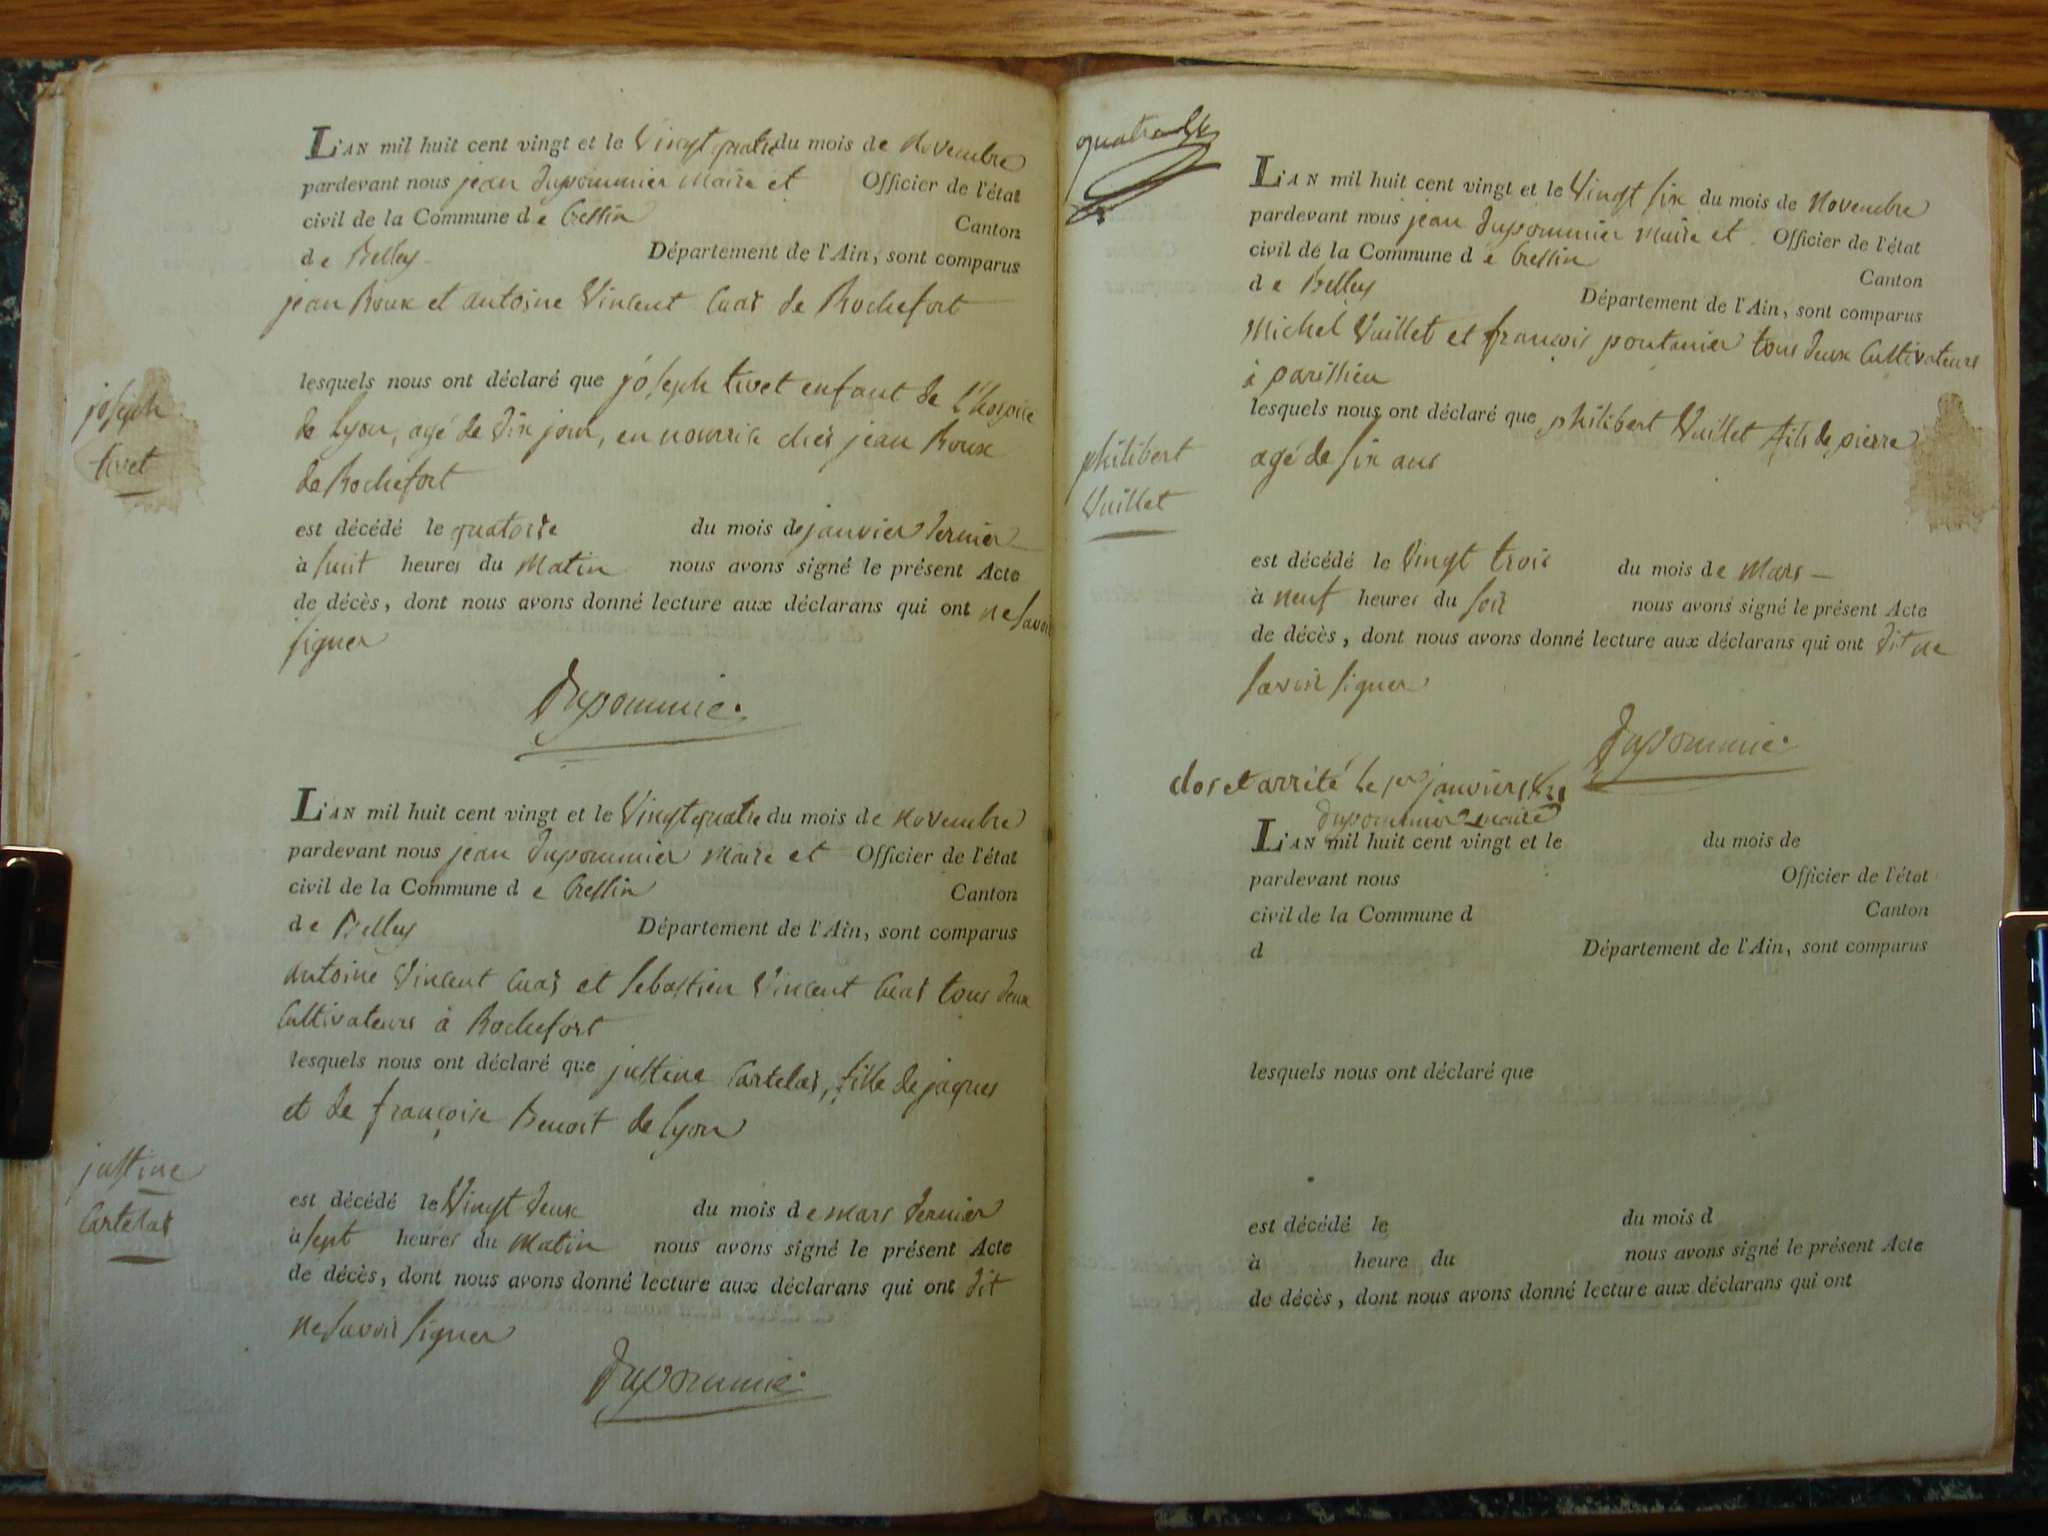 L'AN mil huit cent vingt et le Vingt quatre du mois de Novembre
pardevant nous jean Dupommier Maire et Officier de l'état
civil de la Commune de Cressin Canton
de Belley Département de l'Ain, sont comparus
jean Roux et antoine Vincent Cuaz de Rochefort
joseph
tivet
lesquels nous ont déclaré que joseph tivet enfant de l'hospice
de Lyon, agé de dix jour, en nourrice chés jean Roux
de Rochefort
est décédé le quatorze du mois de janvier dernier
à huit heures du Matin nous avons signé le présent Acte
de décès, dont nous avons donné lecture aux déclarans qui ont ne savoir
signer
Dupommie
L'AN mil huit cent vingt et le Vingt quatre du mois de Novembre
pardevant nous jean Dupommier Maire et Officier de l'état
civil de la Commune de Cressin Canton
de Belley Département de l'Ain, sont comparus
antoine Vincent Cuaz et Sebastien Vincent Cuaz tous deux
Cultivateurs à Rochefort
lesquels nous ont déclaré que justine Cartelas, fille de jaques
et de françoise Benoit de Lyon
justine
Cartelas
est décédé le Vingt deux du mois de mars dernier
à sept heures du Matin nous avons signé le présent Acte
de décès, dont nous avons donné lecture aux déclarans qui ont dit
ne savoir signer
Dupommie
L'AN mil huit cent vingt et le Vingt six du mois de Novembre
pardevant nous jean Dupommier Maire et Officier de l'état
civil de la Commune de Cressin Canton
de Belley Département de l'Ain, sont comparus
Michel Vuillet et françois pontanier tous deux Cultivateurs
à parissieu
philibert
Vuillet
lesquels nous ont déclaré que philibert Vuillet fils de pierre
agé de six ans
est décédé le Vingt trois du mois de Mars
à neuf heures du soir nous avons signé le présent Acte
de décès, dont nous avons donné lecture aux déclarans qui ont dit ne
savoir signer
Dupommie
clos et arrité le 1er janvier 1821
Dupommier maire
L'AN mil huit cent vingt et le du mois de
pardevant nous Officier de l'état
civil de la Commune d Canton
d Département de l'Ain, sont comparus
lesquels nous ont déclaré que
est décédé le du mois d
à heure du nous avons signé le présent Acte
de décès, dont nous avons donné lecture aux déclarans qui ont